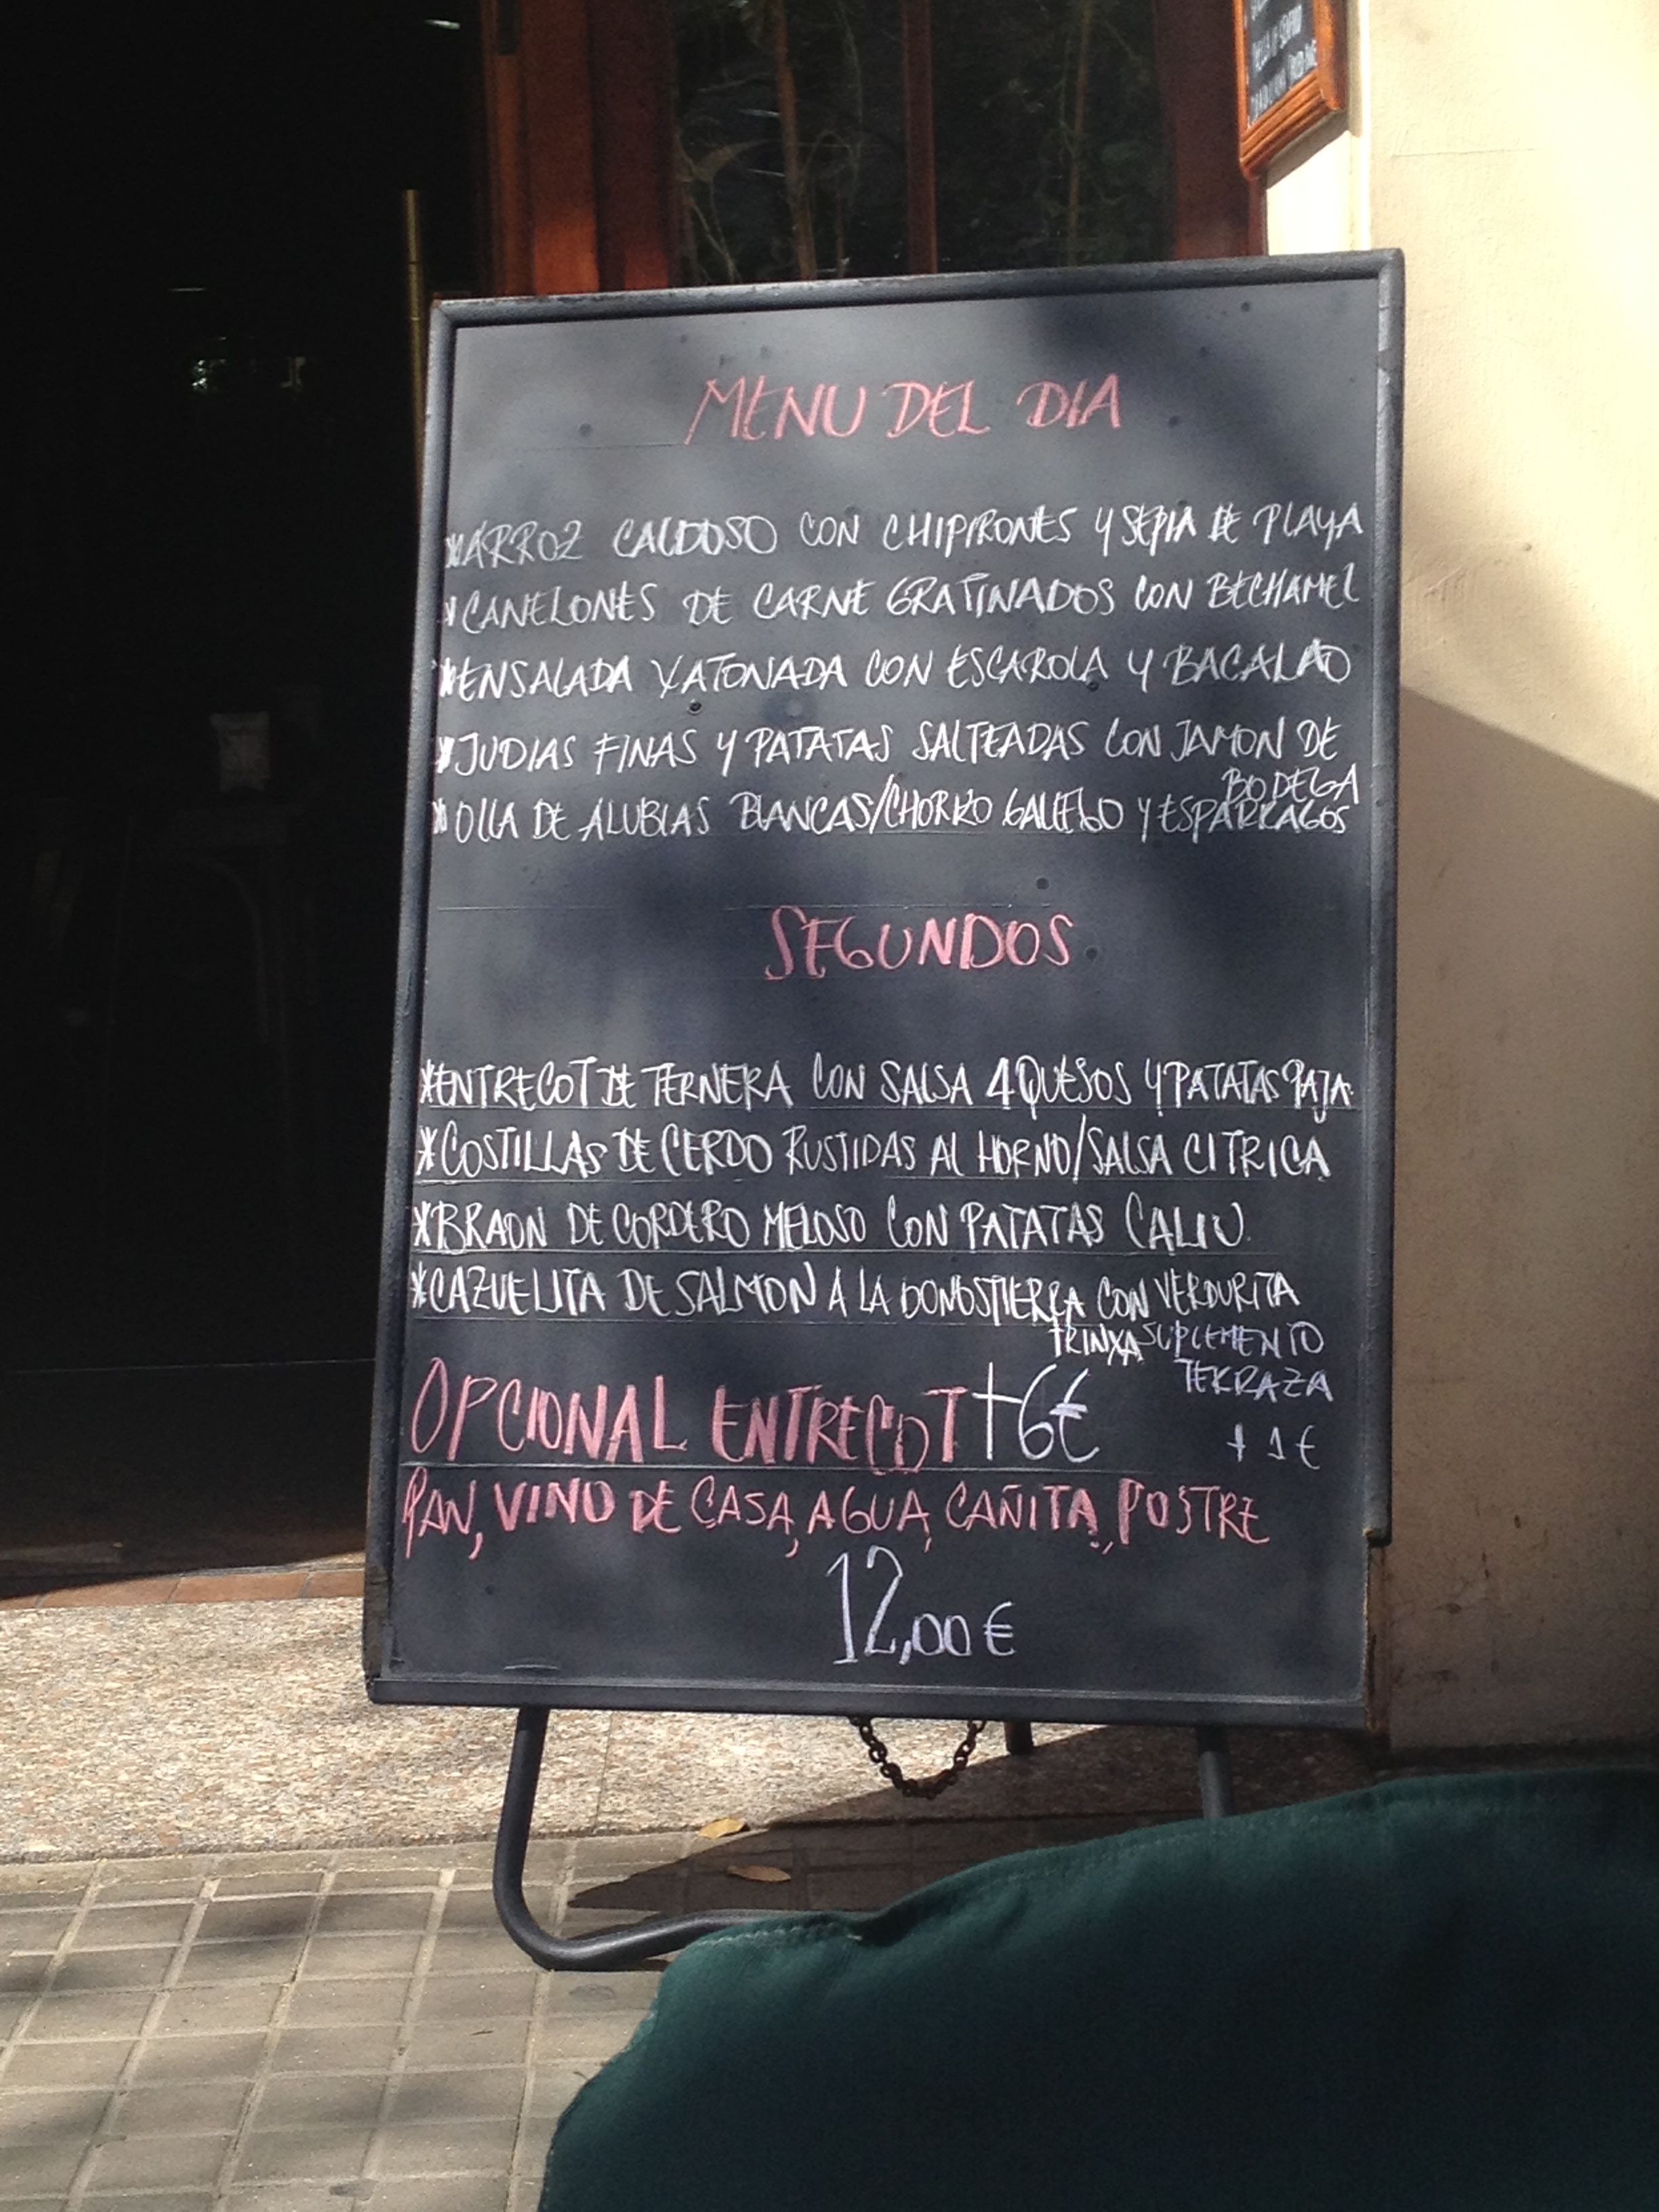 MENU DEL DIA
*ARROZ CALDOSO CON CHIPIRONES Y SEPIA DE PLAYA
*CANELONES DE CARNE GRATINADOS CON BECHAMEL
*ENSALADA XATONADA CON ESCAROLA Y BACALAO
*JUDIAS FINAS Y PATATAS SALTEADAS CON JAMON DE
BODEGA
*OLLA DE ALUBIAS BLANCAS/CHORIZO GALLEGO Y ESPARRAGOS
SEGUNDOS
*ENTRECOT DE TERNERA CON SALSA 4 QUESOS Y PATATAS PAJA.
*COSTILLAS DE CERDO RUSTIDAS AL HORNO/SALSA CITRICA
*BRAON DE CORDERO MELOSO CON PATATAS CALIU.
*CAZUELITA DE SALMON A LA DONOSTIERRA CON VERDURITA
TRINXA
SUPLEMENTO
TERRAZA
+1€
OPCIONAL ENTRECOT +6€
PAN, VINO DE CASA, AGUA, CAÑITA, POSTRE
12,00€